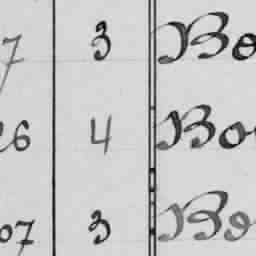 7 3 Bo
26 4 Bo
07 3 Bo